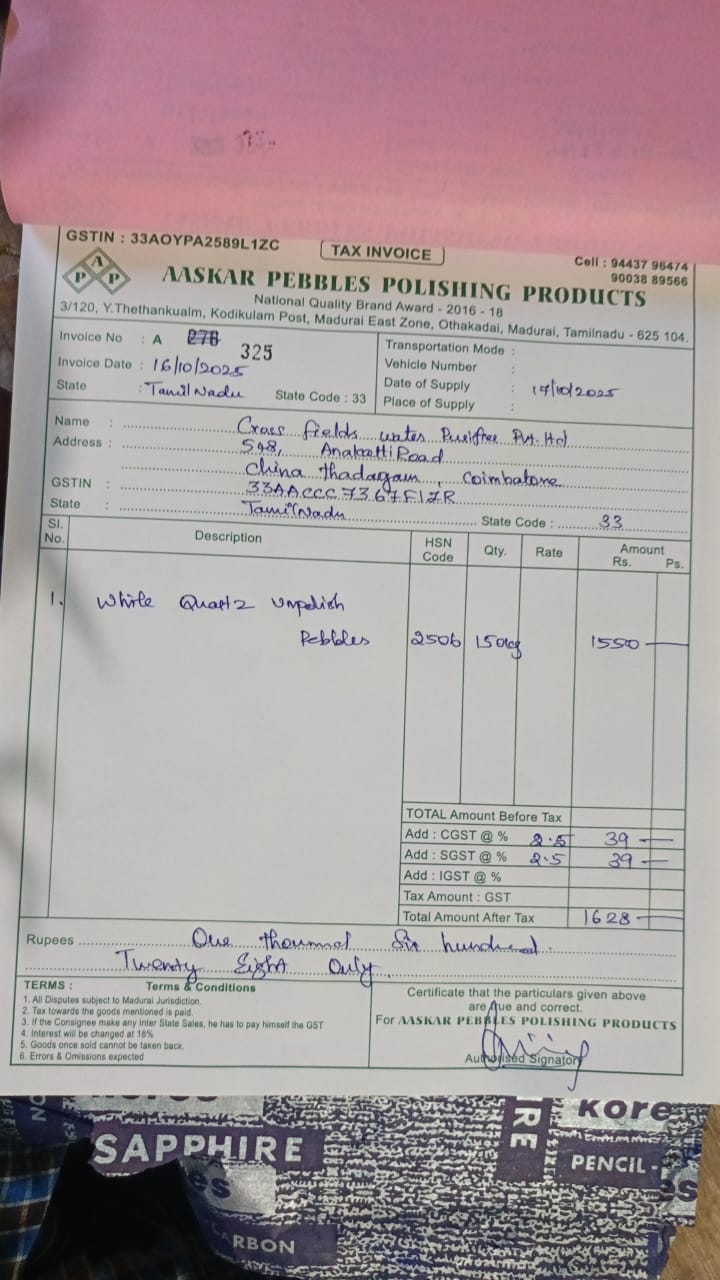 GSTIN : 33AOYPA2589L1ZC
TAX INVOICE
Cell : 94437 96474
90038 89566
A
P P
AASKAR PEBBLES POLISHING PRODUCTS
National Quality Brand Award - 2016 - 18
3/120, Y.Thethankualm, Kodikulam Post, Madurai East Zone, Othakadai, Madurai, Tamilnadu - 625 104.
Invoice No : A 278 325
Invoice Date : 16/10/2025
State : Tamil Nadu State Code : 33
Transportation Mode :
Vehicle Number :
Date of Supply : 17/10/2025
Place of Supply :
Name : Cross fields water Purifier Pvt. Ltd
Address : 548, Anakatti Road
China thadagam, Coimbatore
GSTIN : 33AACCC7367F1ZR
State : Tamil Nadu State Code : 33
Sl. No. Description HSN Code Qty. Rate Amount Rs. Ps.
1. White Quartz unpolish
Pebbles 2506 150kg 1550 —
TOTAL Amount Before Tax
Add : CGST @ % 2.5 39 —
Add : SGST @ % 2.5 39 —
Add : IGST @ %
Tax Amount : GST
Total Amount After Tax 1628 —
Rupees One thousand Six hundred
Twenty Eight Only.
TERMS : Terms & Conditions
1. All Disputes subject to Madurai Jurisdiction.
2. Tax towards the goods mentioned is paid.
3. If the Consignee make any Inter State Sales, he has to pay himself the GST
4. Interest will be changed at 18%
5. Goods once sold cannot be taken back.
6. Errors & Omissions expected
Certificate that the particulars given above
are true and correct.
For AASKAR PEBBLES POLISHING PRODUCTS
Authorised Signatory
SAPPHIRE
Kore
PENCIL -
RBON